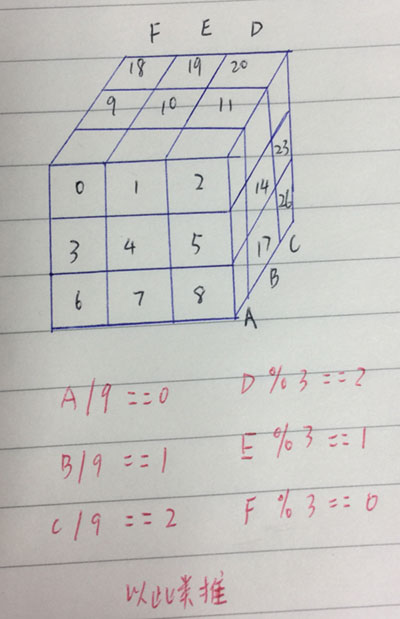 F E D
18 19 20
9 10 11
0 1 2
23
14
26
3 4 5
17
C
B
6 7 8
A
A/9 ==0 D%3==2
B/9 ==1 E%3==1
C/9 ==2 F%3==0
以此类推